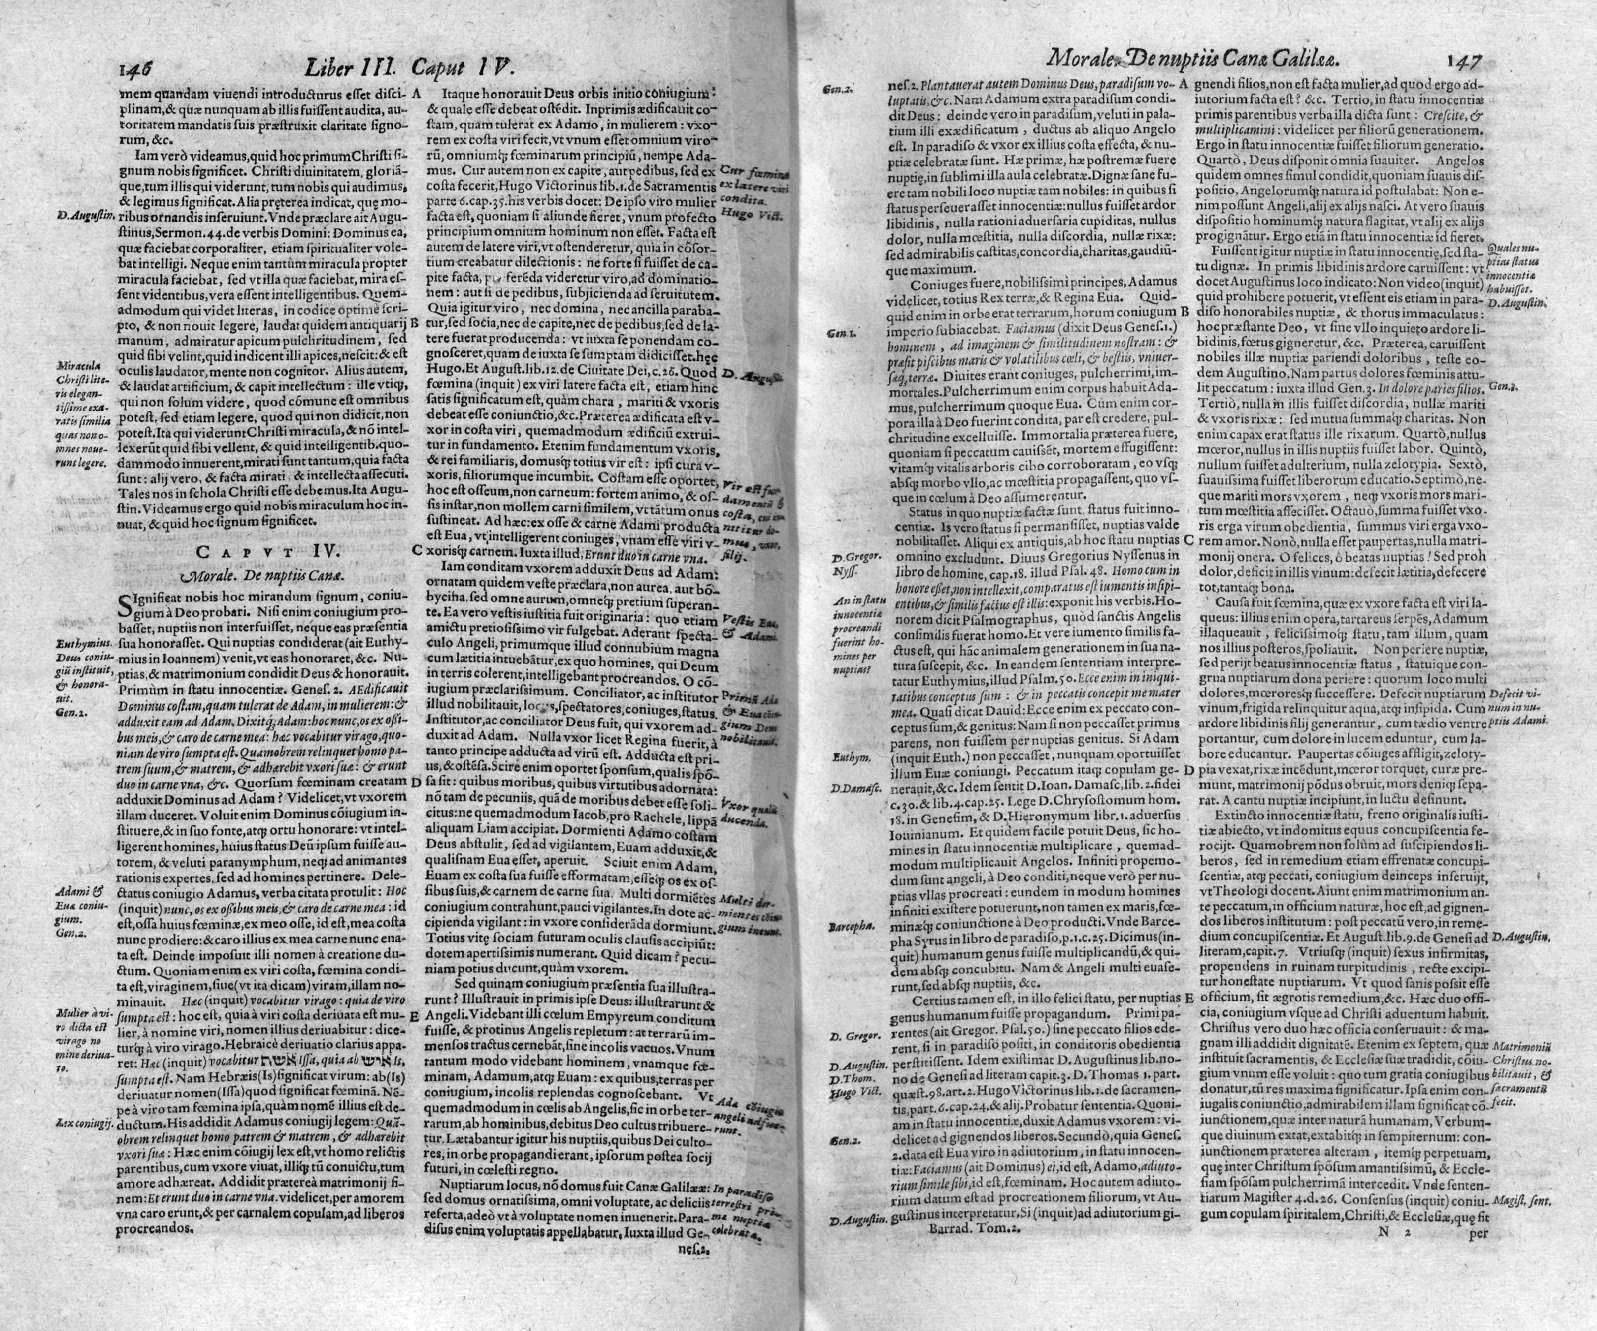 146 Liber III. Caput IV.
mem quandam viuendi introducturus esset disci-
plinam, & quæ nunquam ab illis fuissent audita, au-
toritatem mandatis suis præstruxit claritate signo-
rum, &c.
Iam verò videamus, quid hoc primum Christi si-
gnum nobis significet. Christi diuinitatem, gloriã-
que, tum illis qui viderunt, tum nobis qui audimus,
& legimus significat. Alia pręterea indicat, quę mo-
D. Augustin.
ribus ornandis inseruiunt. Vnde præclare ait Augu-
stinus, Sermon. 44. de verbis Domini: Dominus ea,
quæ faciebat corporaliter, etiam spiritualiter vole-
bat intelligi. Neque enim tantùm miracula propter
miracula faciebat, sed vt illa quæ faciebat, mira es-
sent videntibus, vera essent intelligentibus. Quem-
admodum qui videt literas, in codice optimè scri-
pto, & non nouit legere, laudat quidem antiquarij
manum, admiratur apicum pulchritudinem, sed
quid sibi velint, quid indicent illi apices, nescit: & est
Miracula
Christi lite-
ris elegan-
tissime exa-
ratis similia
quas non o-
mnes noue-
runt legere.
oculis laudator, mente non cognitor. Alius autem,
& laudat artificium, & capit intellectum: ille vtiq;,
qui non solum videre, quod cõmune est omnibus
potest, sed etiam legere, quod qui non didicit, non
potest. Ita qui viderunt Christi miracula, & nõ intel-
lexerũt quid sibi vellent, & quid intelligentib. quo-
dammodo innuerent, mirati sunt tantum, quia facta
sunt: alij vero, & facta mirati, & intellecta assecuti.
Tales nos in schola Christi esse debemus. Ita Augu-
stin. Videamus ergo quid nobis miraculum hoc in-
nuat, & quid hoc signum significet.
CAPVT IV.
Morale. De nuptiis Canæ.
SIgnificat nobis hoc mirandum signum, coniu-
gium à Deo probari. Nisi enim coniugium pro-
basset, nuptiis non interfuisset, neque eas præsentia
Euthymius.
Deus coniu-
giũ instituit,
& honora-
uit.
Gen. 2.
sua honorasset. Qui nuptias condiderat (ait Euthy-
mius in Ioannem) venit, vt eas honoraret, &c. Nu-
ptias, & matrimonium condidit Deus & honorauit.
Primùm in statu innocentiæ. Genes. 2. AEdificauit
Dominus costam, quam tulerat de Adam, in mulierem: &
adduxit eam ad Adam. Dixitq; Adam: hoc nunc, os ex ossi-
bus meis, & caro de carne mea: hæc vocabitur virago, quo-
niam de viro sumpta est. Quamobrem relinquet homo pa-
trem suum, & matrem, & adhærebit vxori suæ: & erunt
duo in carne vna, &c. Quorsum fœminam creatam
adduxit Dominus ad Adam? Videlicet, vt vxorem
illam duceret. Voluit enim Dominus cõiugium in-
stituere, & in suo fonte, atq; ortu honorare: vt intel-
ligerent homines, huius status Deũ ipsum fuisse au-
torem, & veluti paranymphum, neq; ad animantes
rationis expertes, sed ad homines pertinere. Dele-
Adami &
Euæ coniu-
gium.
Gen. 2.
ctatus coniugio Adamus, verba citata protulit: Hoc
(inquit) nunc, os ex ossibus meis, & caro de carne mea: id
est, ossa huius fœminæ, ex meo osse, id est, mea costa
nunc prodiere: & caro illius ex mea carne nunc ena-
ta est. Deinde imposuit illi nomen à creatione du-
ctum. Quoniam enim ex viri costa, fœmina condi-
ta est, viraginem, siue (vt ita dicam) viram, illam no-
minauit. Hæc (inquit) vocabitur virago: quia de viro
Mulier à vi-
ro dicta est
virago no-
mine deriua-
to.
sumpta est: hoc est, quia à viri costa deriuata est mu-
lier, à nomine viri, nomen illius deriuabitur: dice-
turq; à viro virago. Hebraicè deriuatio clarius appa-
ret: Hæc (inquit) vocabitur אשה Issa, quia ab איש Is,
sumpta est. Nam Hebræis (Is) significat virum: ab (Is)
deriuatur nomen (Issa) quod significat fœminã. Nẽ-
pe à viro tam fœmina ipsa, quàm nomẽ illius est de-
Lex coniugij.
ductum. His addidit Adamus coniugij legem: Quã-
obrem relinquet homo patrem & matrem, & adhærebit
vxori suæ: Hæc enim cõiugij lex est, vt homo relictis
parentibus, cum vxore viuat, illiq; tũ conuictu, tum
amore adhæreat. Addidit præterea matrimonij fi-
nem: Et erunt duo in carne vna. videlicet, per amorem
vna caro erunt, & per carnalem copulam, ad liberos
procreandos.
A
B
C
D
E
Itaque honorauit Deus orbis initio coniugium:
& quale esse debeat ostẽdit. Inprimis ædificauit co-
stam, quam tulerat ex Adamo, in mulierem: vxo-
rem ex costa viri fecit, vt vnum esset omnium viro-
rũ, omniumq; fœminarum principiũ, nempe Ada-
mus. Cur autem non ex capite, aut pedibus, sed ex
Cur fœmina
ex latere viri
condita.
Hugo Vict.
costa fecerit, Hugo Victorinus lib. 1. de Sacramentis
parte 6. cap. 35. his verbis docet: De ipso viro mulier
facta est, quoniam si aliunde fieret, vnum profecto
principium omnium hominum non esset. Facta est
autem de latere viri, vt ostenderetur, quia in cõsor-
tium creabatur dilectionis: ne forte si fuisset de ca-
pite facta, ferẽda videretur viro, ad dominatio-
nem: aut si de pedibus, subjicienda ad seruitutem.
Quia igitur viro, nec domina, nec ancilla paraba-
tur, sed socia, nec de capite, nec de pedibus, sed de la-
tere fuerat producenda: vt iuxta se ponendam co-
gnosceret, quam de iuxta se sumptam didicisset. hęc
Hugo. Et August. lib. 12. de Ciuitate Dei, c. 26. Quod
D. August.
fœmina (inquit) ex viri latere facta est, etiam hinc
satis significatum est, quàm chara, mariti & vxoris
debeat esse coniunctio, &c. Præterea ædificata est v-
xor in costa viri, quemadmodum ædificiũ extrui-
tur in fundamento. Etenim fundamentum vxoris,
& rei familiaris, domusq; totius vir est: ipsi cura v-
xoris, filiorumque incumbit. Costam esse oportet,
hoc est osseum, non carneum: fortem animo, & os-
sis instar, non mollem carni similem, vt tãtum onus
sustineat. Ad hæc: ex osse & carne Adami producta
est Eua, vt intelligerent coniuges, vnam esse viri v-
xorisq; carnem. Iuxta illud, Erunt duo in carne vna.
Iam conditam vxorem adduxit Deus ad Adam:
ornatam quidem veste præclara, non aurea, aut bõ-
bycina, sed omne aurum, omneq; pretium superan-
te. Ea vero vestis iustitia fuit originaria: quo etiam
Vestis Euæ,
& Adami.
amictu pretiosissimo vir fulgebat. Aderant specta-
culo Angeli, primumque illud connubium magna
cum lætitia intuebãtur, ex quo homines, qui Deum
in terris colerent, intelligebant procreandos. O cõ-
iugium præclarissimum. Conciliator, ac institutor
illud nobilitauit, locus, spectatores, coniuges, status.
Institutor, ac conciliator Deus fuit, qui vxorem ad-
duxit ad Adam. Nulla vxor licet Regina fuerit, à
tanto principe adducta ad virũ est. Adducta est pri-
us, & ostẽsa. Scire enim oportet sponsum, qualis spõ-
sa sit: quibus moribus, quibus virtutibus adornata:
nõ tam de pecuniis, quã de moribus debet esse soli-
Vxor qualis
ducenda.
citus: ne quemadmodum Iacob, pro Rachele, lippã
aliquam Liam accipiat. Dormienti Adamo costam
Deus abstulit, sed ad vigilantem, Euam adduxit, &
qualisnam Eua esset, aperuit. Sciuit enim Adam,
Euam ex costa sua fuisse efformatam, esseq; os ex os-
sibus suis, & carnem de carne sua. Multi dormiẽtes
coniugium contrahunt, pauci vigilantes. In dote ac-
cipienda vigilant: in vxore considerãda dormiunt.
Totius vitę sociam futuram oculis clausis accipiũt:
dotem apertissimis numerant. Quid dicam? pecu-
niam potius ducunt, quàm vxorem.
Sed quinam coniugium præsentia sua illustra-
runt? Illustrauit in primis ipse Deus: illustrarunt &
Angeli. Videbant illi cœlum Empyreum conditum
fuisse, & protinus Angelis repletum: at terrarũ im-
mensos tractus cernebãt, sine incolis vacuos. Vnum
tantum modo videbant hominem, vnamque fœ-
minam, Adamum, atq; Euam: ex quibus, terras per
coniugium, incolis replendas cognoscebant. Vt
quemadmodum in cœlis ab Angelis, sic in orbe ter-
rarum, ab hominibus, debitus Deo cultus tribuere-
tur. Lætabantur igitur his nuptiis, quibus Dei culto-
res, in orbe propagandi erant, ipsorum postea socij
futuri, in cœlesti regno.
Nuptiarum locus, nõ domus fuit Canæ Galilææ:
In paradiso
terrestri pri-
mæ nuptiæ
celebratæ.
sed domus ornatissima, omni voluptate, ac deliciis
referta, adeò vt à voluptate nomen inuenerit. Para-
disus enim voluptatis appellabatur, Iuxta illud Ge-
nes. 2.
Morale. De nuptiis Canæ Galilææ. 147
Gen. 2.
nes. 2. Plantauerat autem Dominus Deus, paradisum vo-
luptatis, &c. Nam Adamum extra paradisum condi-
dit Deus: deinde vero in paradisum, veluti in pala-
tium illi exædificatum, ductus ab aliquo Angelo
est. In paradiso & vxor ex illius costa effecta, & nu-
ptiæ celebratæ sunt. Hæ primæ, hæ postremæ fuere
nuptię, in sublimi illa aula celebratæ. Dignæ sane fu-
ere tam nobili loco nuptiæ tam nobiles: in quibus si
status perseuerasset innocentiæ: nullus fuisset ardor
libidinis, nulla rationi aduersaria cupiditas, nullus
dolor, nulla mœstitia, nulla discordia, nullæ rixæ:
sed admirabilis castitas, concordia, charitas, gaudiũ-
que maximum.
Coniuges fuere, nobilissimi principes, Adamus
videlicet, totius Rex terræ, & Regina Eua. Quid-
quid enim in orbe erat terrarum, horum coniugium
Gen. 1.
imperio subiacebat. Faciamus (dixit Deus Genes. 1.)
hominem, ad imaginem & similitudinem nostram: &
præsit piscibus maris & volatilibus cœli, & bestiis, vniuer-
sæq; terræ. Diuites erant coniuges, pulcherrimi, im-
mortales. Pulcherrimum enim corpus habuit Ada-
mus, pulcherrimum quoque Eua. Cum enim cor-
pora illa à Deo fuerint condita, par est credere, pul-
chritudine excelluisse. Immortalia præterea fuere,
quoniam si peccatum cauissẽt, mortem effugissent:
vitamq; vitalis arboris cibo corroboratam, eo vsq;
absq; morbo vllo, ac mœstitia propagassent, quo vs-
que in cœlum à Deo assumerentur.
Status in quo nuptiæ factæ sunt, status fuit inno-
centiæ. Is vero status si permansisset, nuptias valde
nobilitasset. Aliqui ex antiquis, ab hoc statu nuptias
D. Gregor.
Nyss.
omnino excludunt. Diuus Gregorius Nyssenus in
libro de homine, cap. 18. illud Psal. 48. Homo cum in
honore esset, non intellexit, comparatus est iumentis insipi-
An in statu
innocentiæ
procreandi
fuerint ho-
mines per
nuptias?
entibus, & similis factus est illis: exponit his verbis. Ho-
norem dicit Psalmographus, quòd sanctis Angelis
consimilis fuerat homo. Et vere iumento similis fa-
ctus est, qui hãc animalem generationem in sua na-
tura suscepit, &c. In eandem sententiam interpre-
tatur Euthymius, illud Psalm. 50. Ecce enim in iniqui-
tatibus conceptus sum: & in peccatis concepit me mater
mea. Quasi dicat Dauid: Ecce enim ex peccato con-
ceptus sum, & genitus: Nam si non peccasset primus
parens, non fuissem per nuptias genitus. Si Adam
Euthym.
(inquit Euth.) non peccasset, nunquam oportuisset
illum Euæ coniungi. Peccatum itaq; copulam ge-
D. Damasc.
nerauit, &c. Idem sentit D. Ioan. Damasc. lib. 2. fidei
c. 30. & lib. 4. cap. 25. Lege D. Chrysostomum hom.
18. in Genesim, & D. Hieronymum libr. 1. aduersus
Iouinianum. Et quidem facile potuit Deus, sic ho-
mines in statu innocentiæ multiplicare, quemad-
modum multiplicauit Angelos. Infiniti propemo-
dum sunt angeli, à Deo conditi, neque verò per nu-
ptias vllas procreati: eundem in modum homines
infiniti existere potuerunt, non tamen ex maris, fœ-
Barcepha.
minæq; coniunctione à Deo producti. Vnde Barce-
pha Syrus in libro de paradiso, p. 1. c. 25. Dicimus (in-
quit) humanum genus fuisse multiplicandũ, & qui-
dem absq; concubitu. Nam & Angeli multi euase-
runt, sed absq; nuptiis, &c.
Certius tamen est, in illo felici statu, per nuptias
genus humanum fuisse propagandum. Primi pa-
D. Gregor.
rentes (ait Gregor. Psal. 50.) sine peccato filios ede-
rent, si in paradiso positi, in conditoris obedientia
D. Augustin.
D. Thom.
Hugo Vict.
perstitissent. Idem existimat D. Augustinus lib. no-
no de Genesi ad literam capit. 3. D. Thomas 1. part.
quæst. 98. art. 2. Hugo Victorinus lib. 1. de sacramen-
tis, part. 6. cap. 24. & alij. Probatur sententia. Quoni-
am in statu innocentiæ, duxit Adamus vxorem: vi-
Gen. 2.
delicet ad gignendos liberos. Secundò, quia Genes.
2. data est Eua viro in adiutorium, in statu innocen-
tiæ: Faciamus (ait Dominus) ei, id est, Adamo, adiuto-
rium simile sibi, id est, fœminam. Hoc autem adiuto-
rium datum est ad procreationem filiorum, vt Au-
D. Augustin.
gustinus interpretatur, Si (inquit) ad adiutorium gi-
Barrad. Tom. 2.
A
B
C
D
E
gnendi filios, non est facta mulier, ad quod ergo ad-
iutorium facta est? &c. Tertio, in statu innocentiæ
primis parentibus verba illa dicta sunt: Crescite, &
multiplicamini: videlicet per filiorũ generationem.
Ergo in statu innocentiæ fuisset filiorum generatio.
Quartò, Deus disponit omnia suauiter. Angelos
quidem omnes simul condidit, quoniam suauis dis-
positio, Angelorumq; natura id postulabat: Non e-
nim possunt Angeli, alij ex alijs nasci. At vero suauis
dispositio hominumq; natura flagitat, vt alij ex alijs
progignãtur. Ergo etiã in statu innocentiæ id fieret.
Quales nu-
ptias status
innocentiæ
habuisset.
D. Augustin.
Fuissent igitur nuptiæ in statu innocentię, sed sta-
tu dignæ. In primis libidinis ardore caruissent: vt
docet Augustinus loco indicato: Non video (inquit)
quid prohibere potuerit, vt essent eis etiam in para-
diso honorabiles nuptiæ, & thorus immaculatus:
hoc præstante Deo, vt sine vllo inquieto ardore li-
bidinis, fœtus gigneretur, &c. Præterea, caruissent
nobiles illæ nuptiæ pariendi doloribus, teste eo-
dem Augustino. Nam partus dolores fœminis attu-
Gen. 3.
lit peccatum: iuxta illud Gen. 3. In dolore paries filios.
Tertiò, nulla in illis fuisset discordia, nullæ mariti
& vxoris rixæ: sed mutua summaq; charitas. Non
enim capax erat status ille rixarum. Quartò, nullus
mœror, nullus in illis nuptiis fuisset labor. Quintò,
nullum fuisset adulterium, nulla zelotypia. Sextò,
suauissima fuisset liberorum educatio. Septimò, ne-
que mariti mors vxorem, neq; vxoris mors mari-
tum mœstitia affecisset. Octauò, summa fuisset vxo-
ris erga virum obedientia, summus viri erga vxo-
rem amor. Nonò, nulla esset paupertas, nulla matri-
monij onera. O felices, ô beatas nuptias! Sed proh
dolor, deficit in illis vinum: defecit lætitia, defecere
tot, tantaq; bona.
Causa fuit fœmina, quæ ex vxore facta est viri la-
queus: illius enim opera, tartareus serpẽs, Adamum
illaqueauit, felicissimoq; statu, tam illum, quam
nos illius posteros, spoliauit. Non periere nuptiæ,
sed perijt beatus innocentiæ status, statuique con-
grua nuptiarum dona periere: quorum loco multi
Defecit vi-
num in nu-
ptiis Adami.
dolores, mœroresq; successere. Defecit nuptiarum
vinum, frigida relinquitur aqua, atq; insipida. Cum
ardore libidinis filij generantur, cum tædio ventre
portantur, cum dolore in lucem eduntur, cum la-
bore educantur. Paupertas cõiuges affligit, zeloty-
pia vexat, rixæ incẽdunt, mœror torquet, curæ pre-
munt, matrimonij põdus obruit, mors deniq; sepa-
rat. A cantu nuptiæ incipiunt, in luctu desinunt.
Extincto innocentiæ statu, freno originalis iusti-
tiæ abiecto, vt indomitus equus concupiscentia fe-
rocijt. Quamobrem non solùm ad suscipiendos li-
beros, sed in remedium etiam effrenatæ concupi-
scentiæ, atq; peccati, coniugium deinceps inseruijt,
vt Theologi docent. Aiunt enim matrimonium an-
te peccatum, in officium naturæ, hoc est, ad gignen-
dos liberos institutum: post peccatũ vero, in reme-
D. Augustin.
dium concupiscentiæ. Et August. lib. 9. de Genesi ad
literam, capit. 7. Vtriusq; (inquit) sexus infirmitas,
propendens in ruinam turpitudinis, recte excipi-
tur honestate nuptiarum. Vt quod sanis possit esse
officium, sit ægrotis remedium, &c. Hæc duo offi-
cia, coniugium vsque ad Christi aduentum habuit.
Christus vero duo hæc officia conseruauit: & ma-
gnam illi addidit dignitatẽ. Etenim ex septem, quæ
Matrimoniũ
Christus no-
bilitauit, &
sacramentũ
fecit.
instituit sacramentis, & Ecclesiæ suæ tradidit, cõiu-
gium vnum esse voluit: quo tum gratia coniugibus
donatur, tũ res maxima significatur. Ipsa enim con-
iugalis coniunctio, admirabilem illam significat cõ-
iunctionem, quæ inter naturã humanam, Verbum-
que diuinum extat, extabitq; in sempiternum: con-
iunctionem præterea alteram, itemq; perpetuam,
quę inter Christum spõsum amantissimũ, & Eccle-
siam spõsam pulcherrimã intercedit. Vnde senten-
Magist. sent.
tiarum Magister 4. d. 26. Consensus (inquit) coniu-
gum copulam spiritalem, Christi, & Ecclesiæ, quę fit
N 2 per